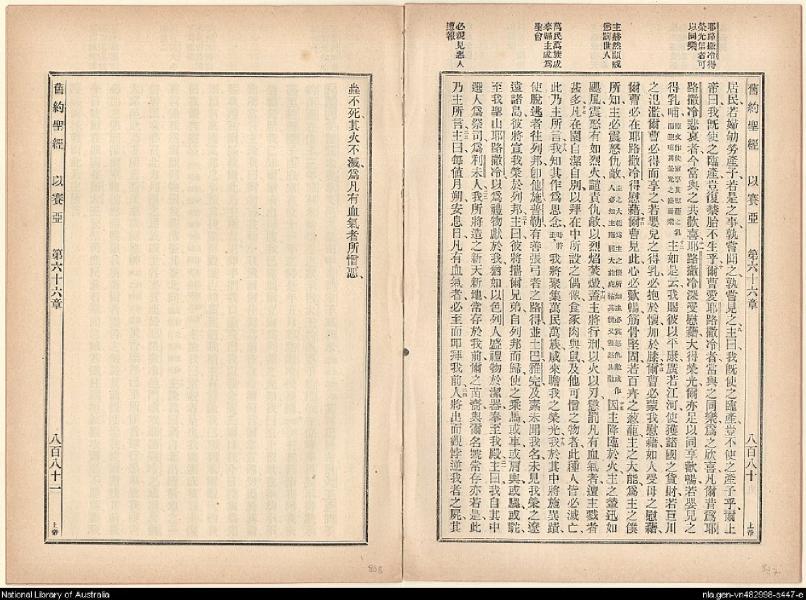 耶路撒冷得
榮光信者可
以同樂
主將烈顯威
萬民萬族咸
奉歸主成爲
聖會
必親見惡人
遭報
舊約聖經 以賽亞 第六十六章 八百八十 上帝
居民若婦劬勞產子若是之事孰嘗聞之孰嘗見之主曰我旣使之臨產豈不使之產子乎爾上
帝曰我旣使之臨產豈復禁胎不生乎爾曹愛耶路撒冷者當與之同樂爲之欣喜凡爾昔爲耶
路撒冷悲哀者今當與之共歡喜耶路撒冷深受慰藉大得榮光爾亦足以同享歡暢若嬰兒之
得乳哺 主如是云我賜彼以平康廣若江河使獲諸國之貨財若亘川
之氾濫爾曹必得而享之若嬰兒之得乳必抱於懷加於膝爾曹必蒙我慰藉如人受母之慰藉
爾曹必在耶路撒冷得慰藉爾曹見此心必歡暢筋骨堅固若百卉之菘蘢主之大能爲主之僕
所知主必震怒仇敵 因主降臨於火主之輦迅如
颶風震怒有如烈火譴責仇敵以烈焰蓋主將行刑以火以刃懲罰凡有血氣者遭主戮者
甚多凡在園自潔自別以拜在中所設之偶像食豕肉與鼠及他可憎之物者此種人皆必滅亡
此乃主所言我知其作爲思念 我將聚集萬民萬族咸來瞻我之榮光我於其中將施異蹟
使脫逃者往列邦卽他施普勒有善張弓者之路得並土巴雅完及素未聞我名未見我榮之遼
遠諸島彼將宣我榮於列邦主曰彼將攜爾兄弟自列邦而歸使之乘馬或車或肩輿或騾或駝
至我聖山耶路撒冷以爲禮物獻於我猶如以色列人盛禮物於潔器奉至我殿主曰我自其中
選人爲祭司爲利未人我所將造之新天新地常存於我前爾之苗裔與爾名號常存亦若是此
乃主所言主曰每値月朔安息日凡有血氣者必至而叩拜我前人將出而觀悖逆我者之屍其
蟲不死其火不滅爲凡有血氣者所憎惡
舊約聖經 以賽亞 第六十六章 八百八十一 上帝
National Library of Australia
nla.gen-vn482998-s447-e